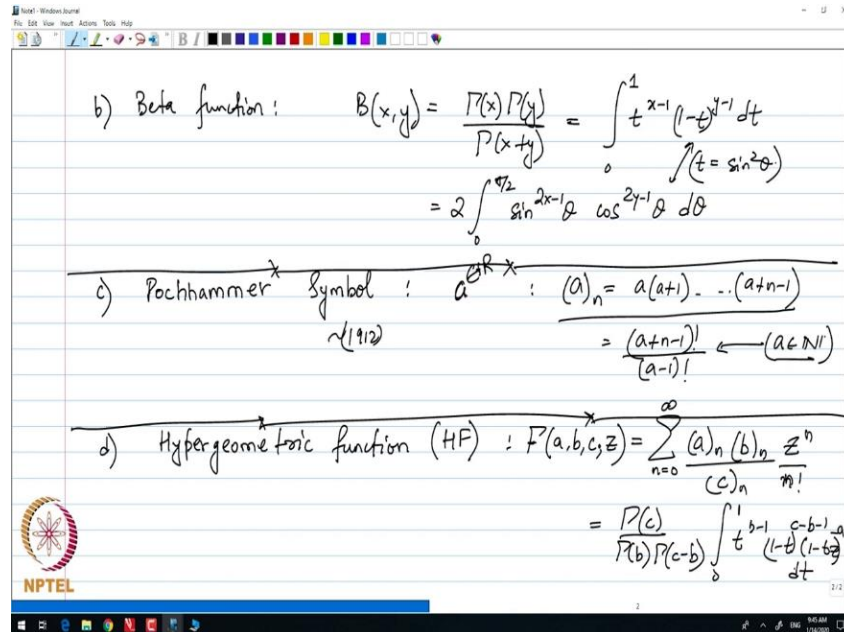 Note1 - Windows Journal
File Edit View Insert Actions Tools Help
b) Beta function : B(x,y) = Γ(x) Γ(y) / Γ(x+y) = ∫₀¹ t^{x-1} (1-t)^{y-1} dt
(t = sin²θ)
= 2 ∫₀^{π/2} sin^{2x-1}θ cos^{2y-1}θ dθ
c) Pochhammer Symbol : a∈R : (a)ₙ = a(a+1) - .. (a+n-1)
~(1912)
= (a+n-1)! / (a-1)! ← (a∈N)
d) Hypergeometric function (HF) : F(a,b,c,z) = ∑_{n=0}^{∞} (a)ₙ (b)ₙ / (c)ₙ zⁿ / n!
= Γ(c) / Γ(b) Γ(c-b) ∫₀¹ t^{b-1} (1-t)^{c-b-1} (1-tz)^{-a} dt
NPTEL
2/2
2
ENG
9:45 AM
1/14/2020